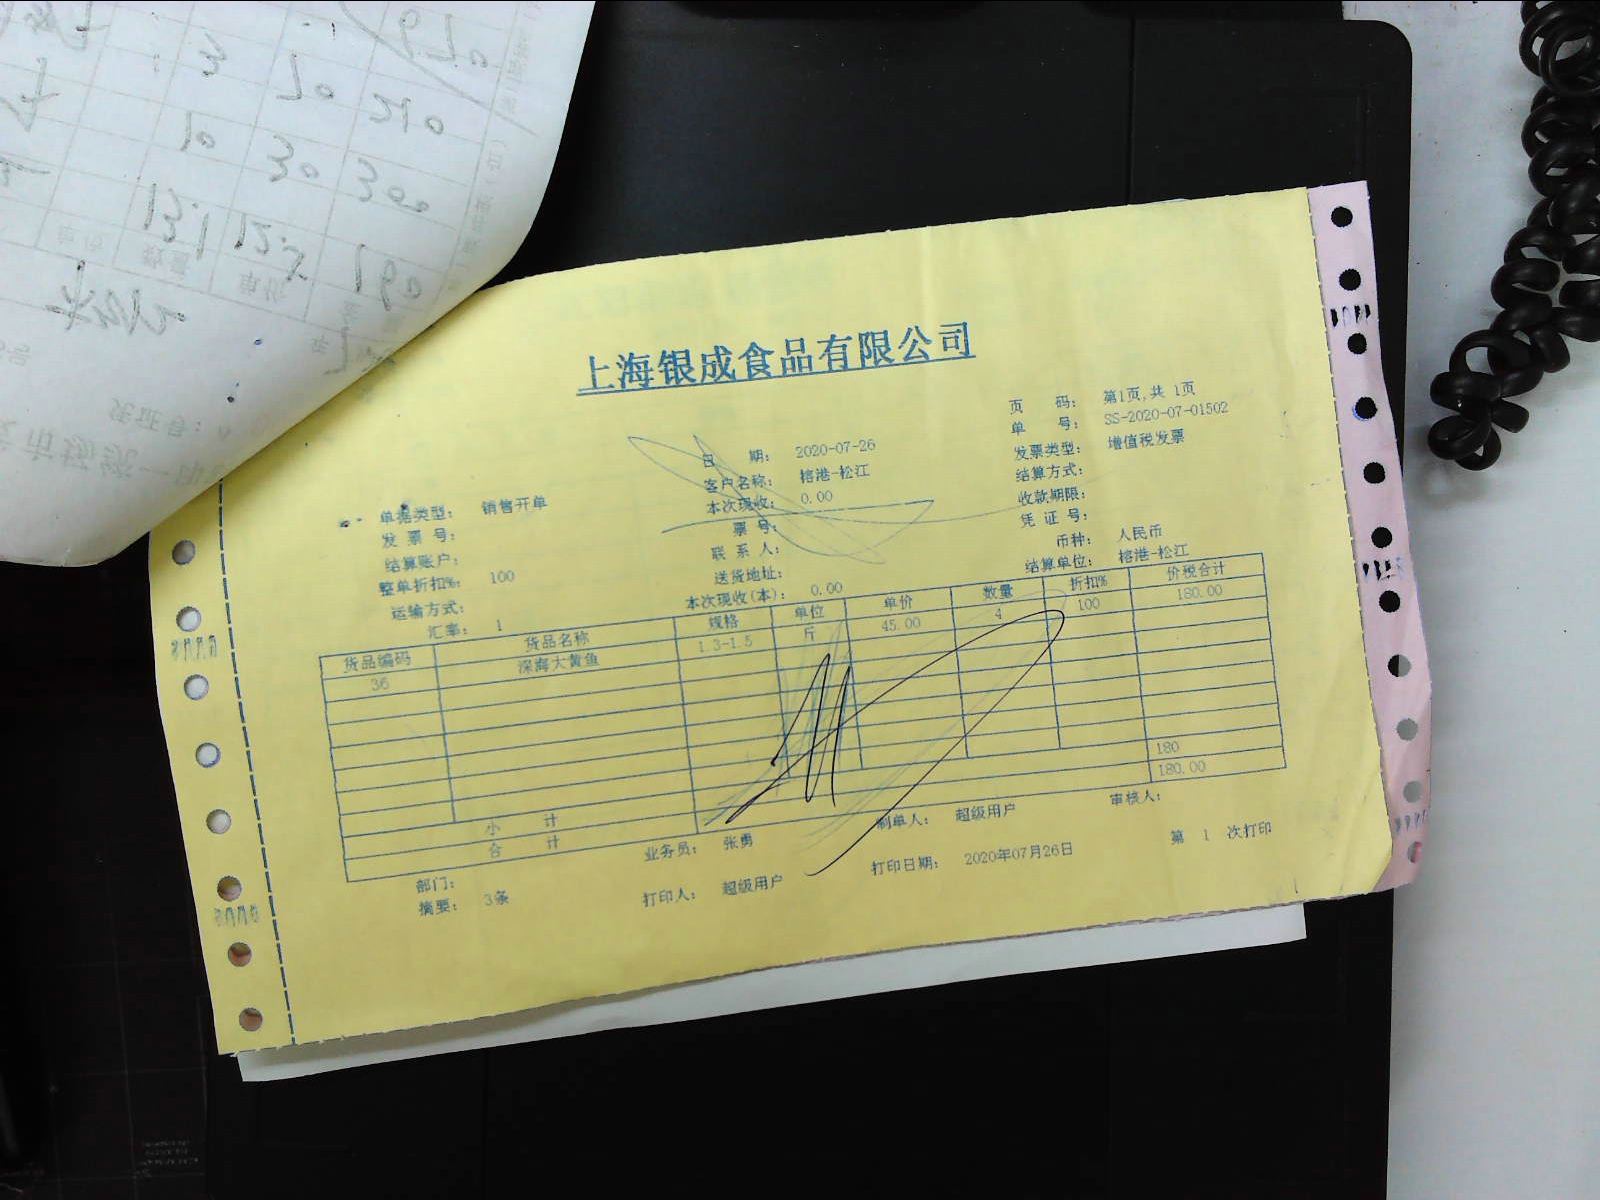 上海银成食品有限公司
页 码: 第1页,共 1页
单 号: SS-2020-07-01502
日 期: 2020-07-26
发票类型: 增值税发票
客户名称: 榕港-松江
结算方式:
单据类型: 销售开单
本次现收: 0.00
收款期限:
发 票 号:
票 号:
凭 证 号:
结算账户:
联 系 人:
币种: 人民币
整单折扣%: 100
送货地址:
结算单位: 榕港-松江
运输方式:
本次现收(本): 0.00
汇率: 1
货品编码 货品名称 规格 单位 单价 数量 折扣% 价税合计
36 深海大黄鱼 1.3-1.5 斤 45.00 4 100 180.00
小 计 180
合 计 180.00
部门: 业务员: 张勇 制单人: 超级用户 审核人:
摘要: 3条 打印人: 超级用户 打印日期: 2020年07月26日 第 1 次打印
3 70 210
10 30 300
13.1 12.5 190